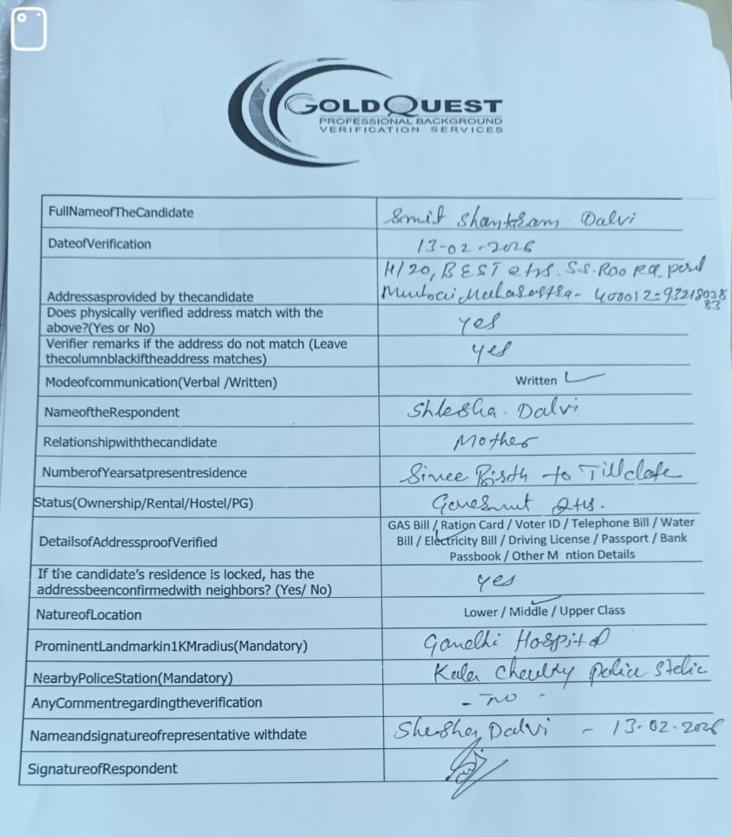 GOLDQUEST
PROFESSIONAL BACKGROUND
VERIFICATION SERVICES
FullNameofTheCandidate Smit Shantaram Dalvi
DateofVerification 13-02-2026
H/20, BEST qtrs. S.S. Rao Rd, parel
Addressasprovided by thecandidate Mumbai Maharastra- 400012=
Does physically verified address match with the
above?(Yes or No) yes
Verifier remarks if the address do not match (Leave
thecolumnblackiftheaddress matches) yes
Modeofcommunication(Verbal /Written) Written
NameoftheRespondent Shlesha. Dalvi
Relationshipwiththecandidate Mother
NumberofYearsatpresentresidence Since Birth to Till date
Status(Ownership/Rental/Hostel/PG) Qtrs.
GAS Bill / Ration Card / Voter ID / Telephone Bill / Water
DetailsofAddressproofVerified Bill / Electricity Bill / Driving License / Passport / Bank
Passbook / Other M ntion Details
If the candidate's residence is locked, has the
addressbeenconfirmedwith neighbors? (Yes/ No) yes
NatureofLocation Lower / Middle / Upper Class
ProminentLandmarkin1KMradius(Mandatory) Gandhi Hospital
NearbyPoliceStation(Mandatory) police
AnyCommentregardingtheverification - no -
Nameandsignatureofrepresentative withdate Dalvi - 13.02.2026
SignatureofRespondent